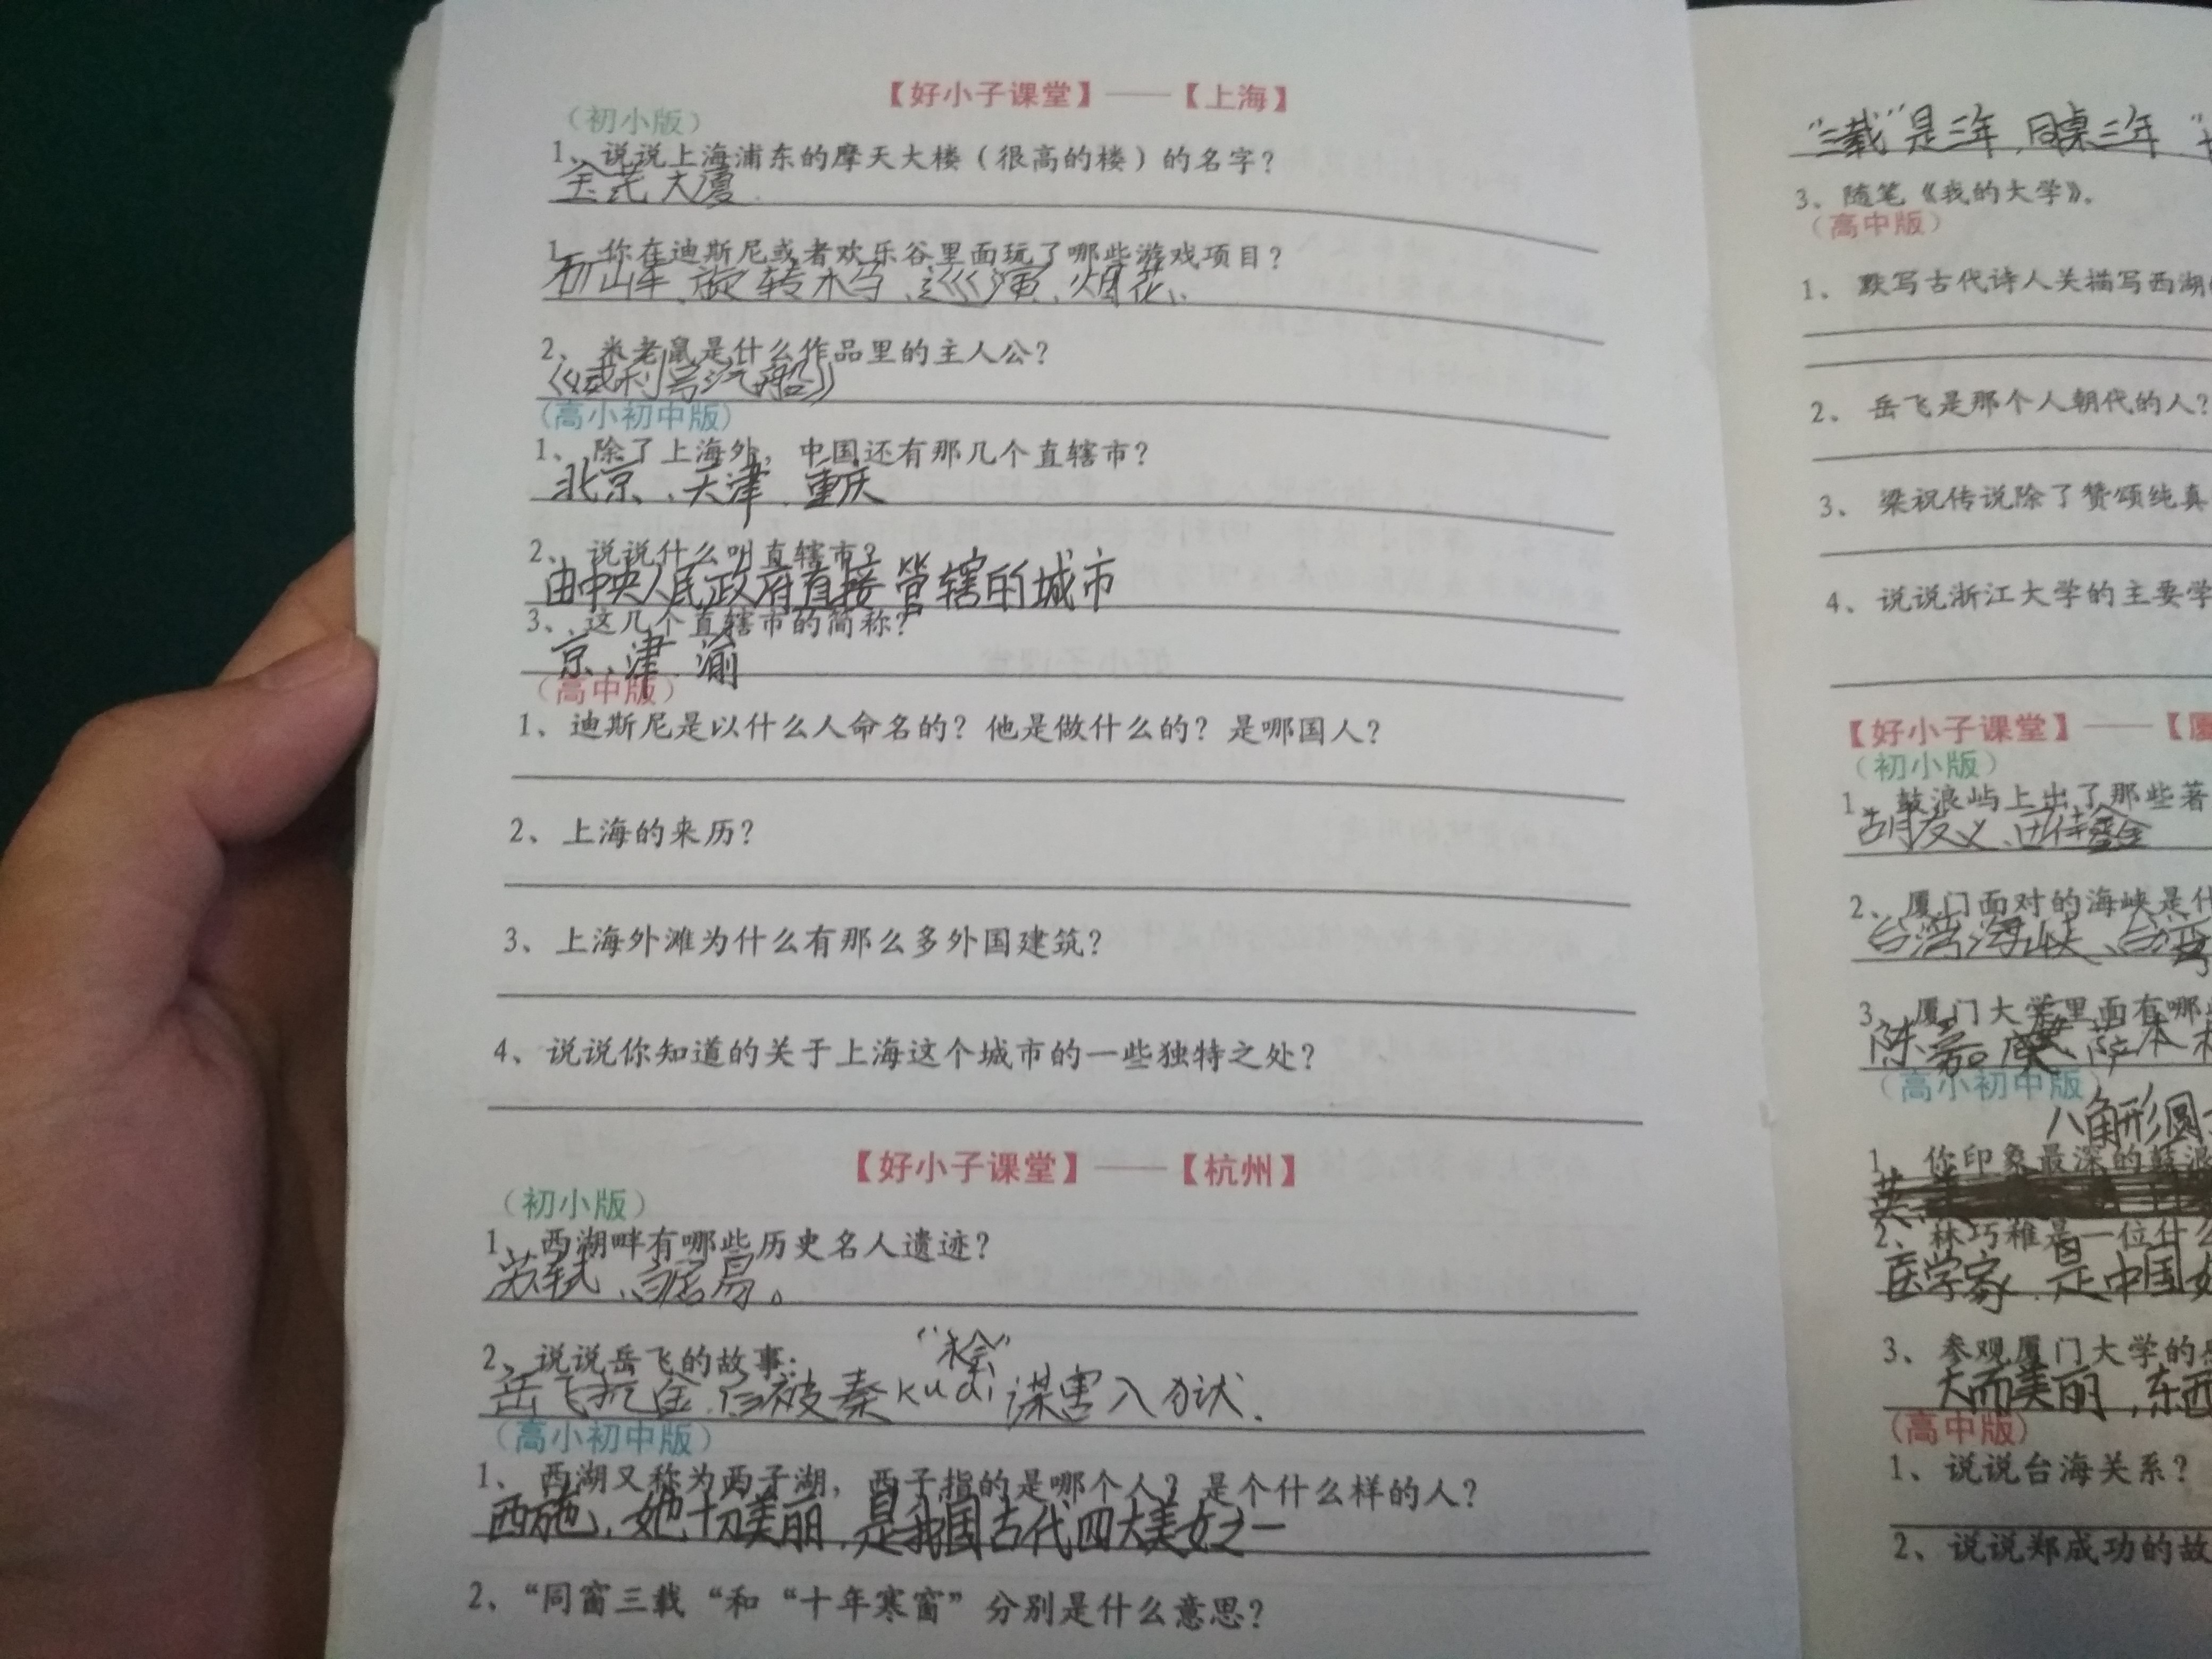 【好小子课堂】——【上海】
（初小版）
1、说说上海浦东的摩天大楼（很高的楼）的名字？
金茫大厦.
1、你在迪斯尼或者欢乐谷里面玩了哪些游戏项目？
旋转木马、巡演、烟花、
2、米老鼠是什么作品里的主人公？
《威利号汽船》
（高小初中版）
1、除了上海外，中国还有那几个直辖市？
北京、天津、重庆
2、说说什么叫直辖市？
由中央人民政府直接管辖的城市
3、这几个直辖市的简称？
京、津 渝
（高中版）
1、迪斯尼是以什么人命名的？他是做什么的？是哪国人？
2、上海的来历？
3、上海外滩为什么有那么多外国建筑？
4、说说你知道的关于上海这个城市的一些独特之处？
【好小子课堂】——【杭州】
（初小版）
1、西湖畔有哪些历史名人遗迹？
苏轼、白居易。
2、说说岳飞的故事：
“桧”
岳飞抗金,后被秦kuài谋害入狱.
（高小初中版）
1、西湖又称为西子湖，西子指的是哪个人？是个什么样的人？
西施，她十分美丽，是我国古代四大美女之一
2、“同窗三载“和“十年寒窗”分别是什么意思？
“三载”是三年，同桌三年
3、随笔《我的大学》。
（高中版）
1、默写古代诗人关描写西湖
2、岳飞是那个人朝代的人？
3、梁祝传说除了赞颂纯真
4、说说浙江大学的主要学
【好小子课堂】——【厦
（初小版）
1、鼓浪屿上出了那些著
胡友义、
2、厦门面对的海峡是什
台湾海峡、台湾
3、厦门大学里面有哪些
陈嘉庚 萨本
（高小初中版）
八角形圆
1、你印象最深的鼓浪
2、林巧稚是一位什么
医学家，是中国
3、参观厦门大学的
大而美丽，东西
（高中版）
1、说说台海关系？
2、说说郑成功的故